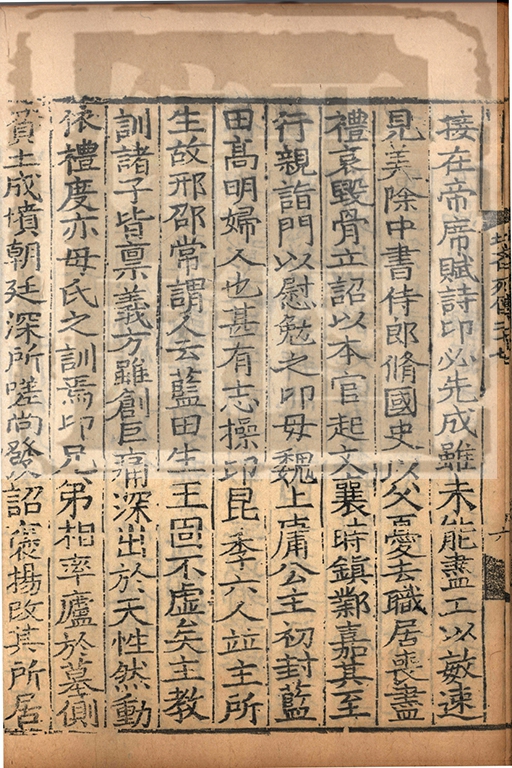 接在帝席賦詩卬必先成雖未能盡工以敏速
見美除中書侍郎脩國史以父憂去職居喪盡
禮哀毀骨立詔以本官起文襄時鎮鄴嘉其至
行親詣門以慰勉之卬母魏上庸公主初封藍
田高明婦人也甚有志操卬昆季六人並主所
生故邢邵常謂人云藍田生玉固不虛矣主教
訓諸子皆稟義方雖創巨痛深出於天性然動
依禮度亦母氏之訓焉卬兄弟相率廬於墓側
負土成墳朝廷深所嗟尚發詔褒揚改其所居